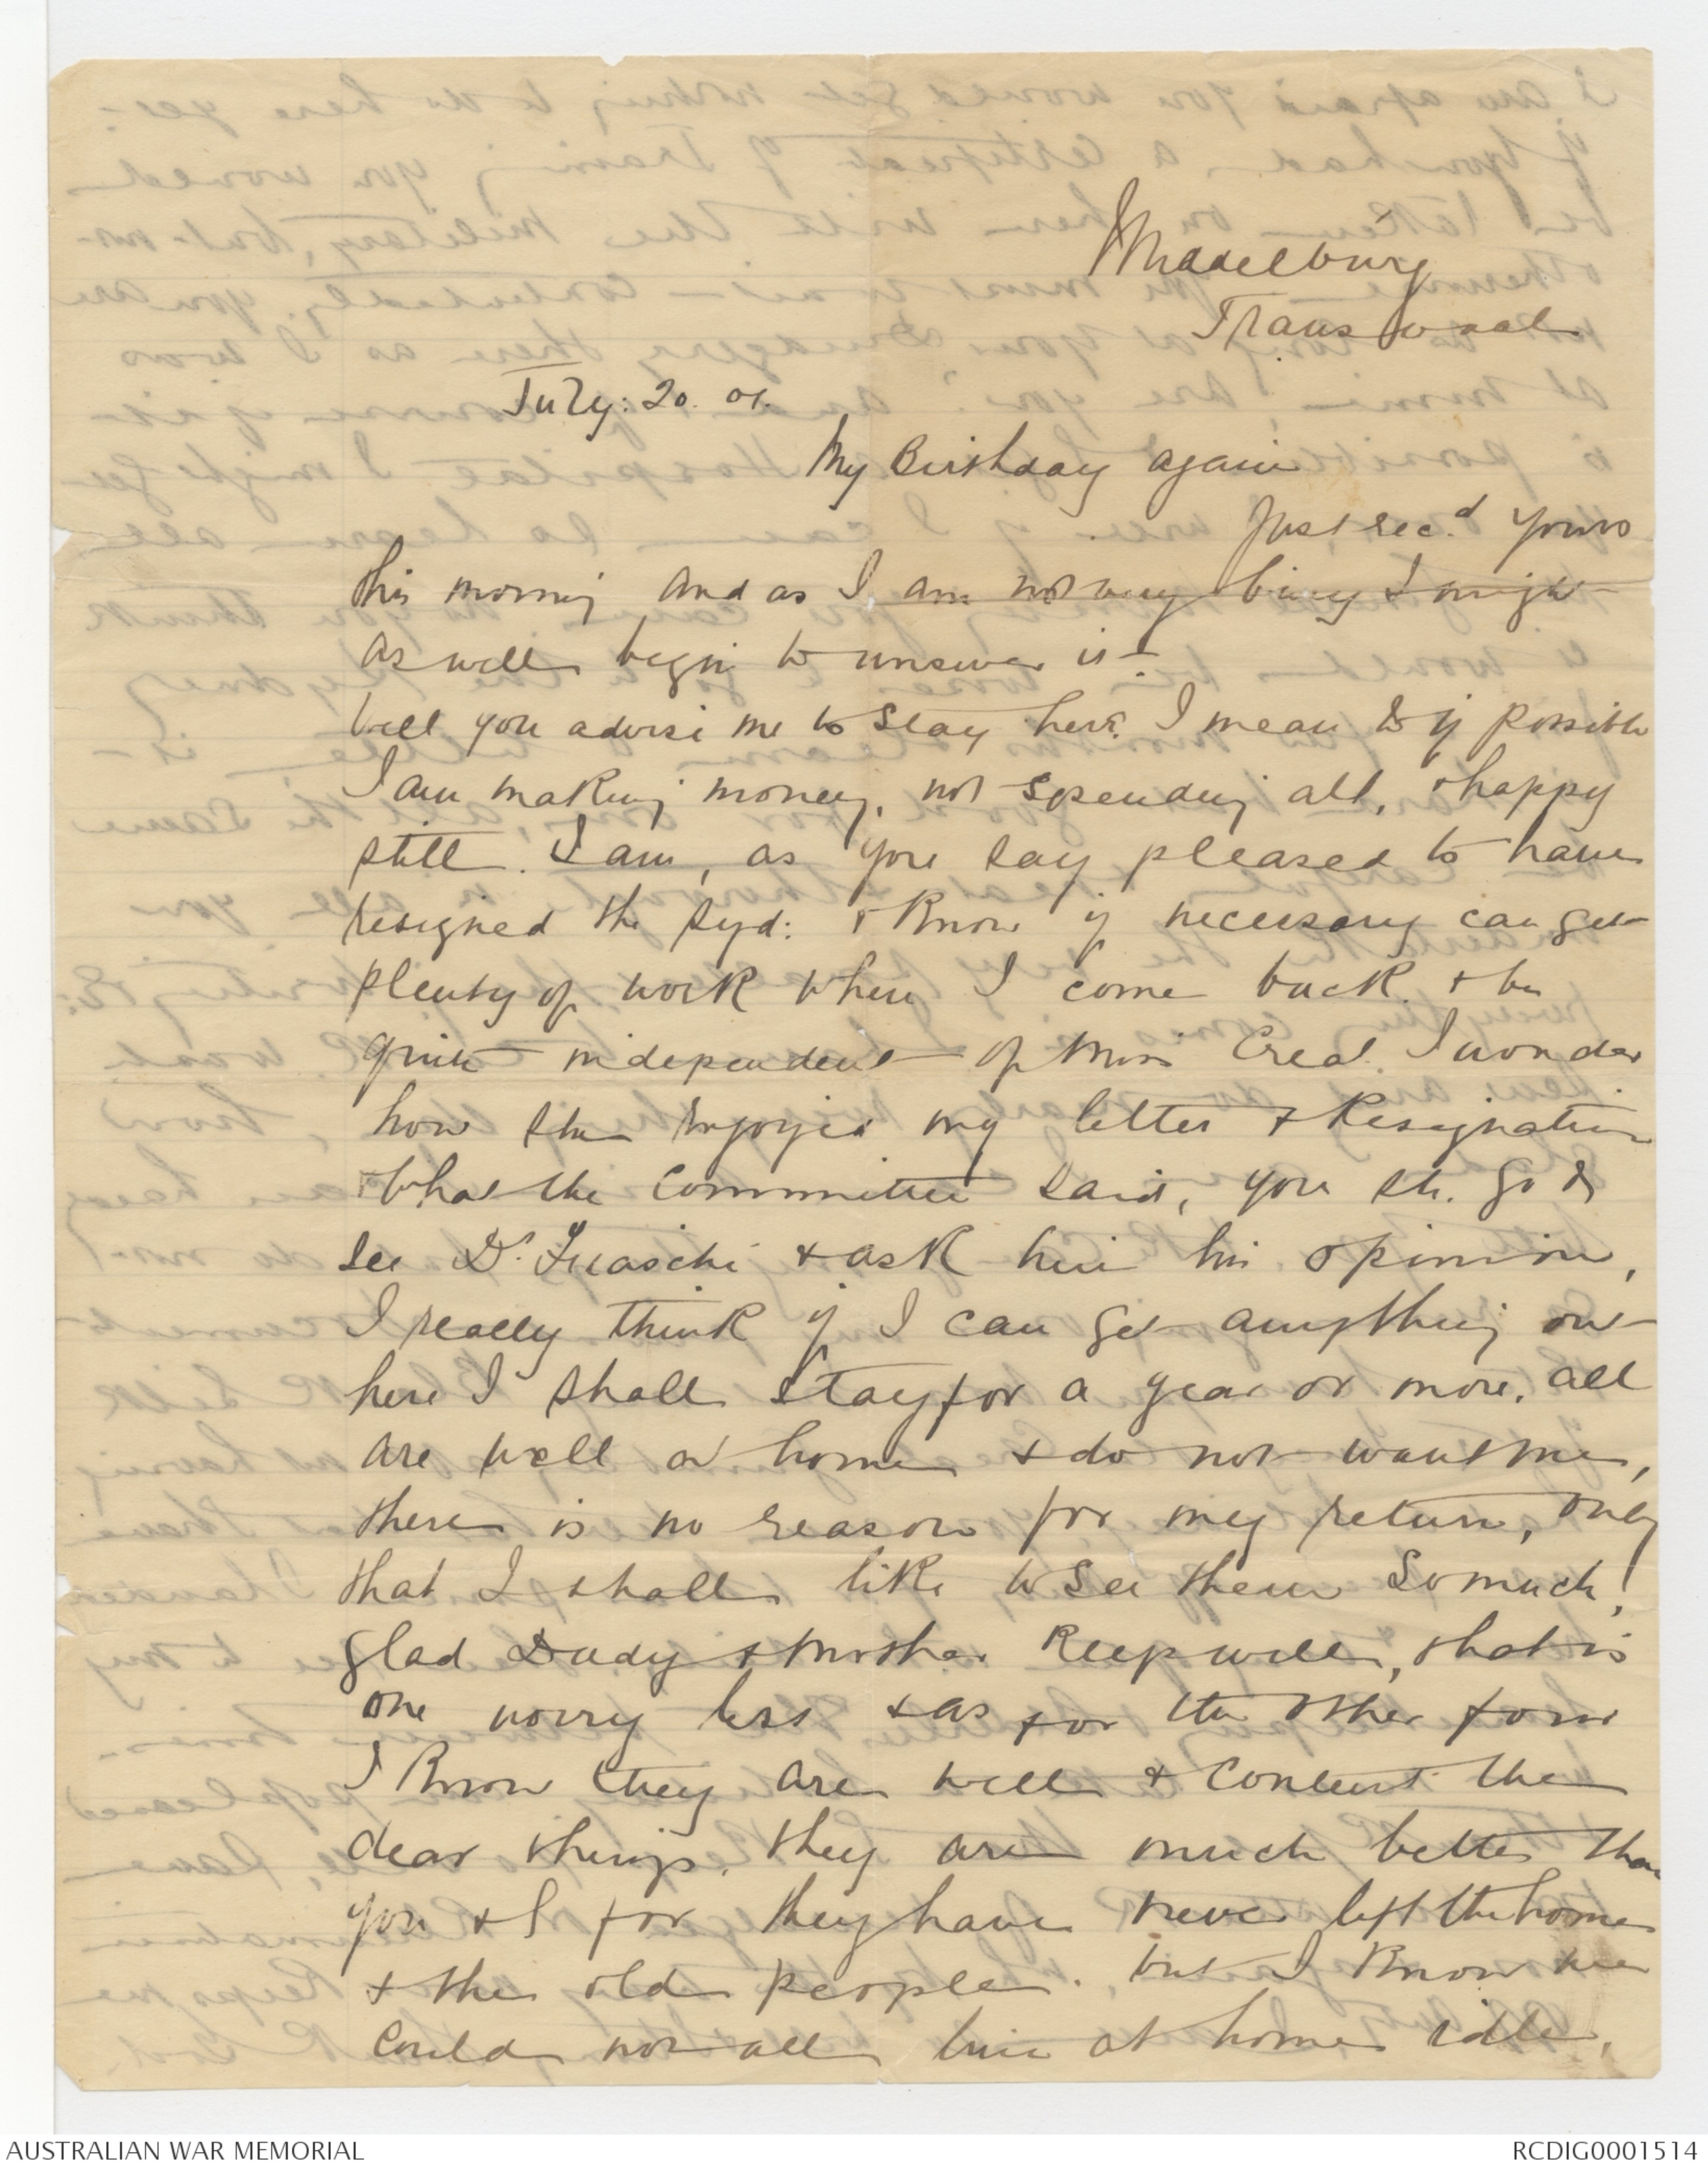 Middelburg
Transvaal
July: 20. 01.
My Birthday again
Just rec.d yours
this morning and as I am not very busy I might
as well begin to answer it.
Well you advise me to stay here, I mean to if possible
I am making money, not spending all, & happy
still. I am, as you say pleased to have
resigned the Syd: & know if necessary can get
plenty of work when I come back. & be
quite independent of Miss Creal. I wonder
how she enjoyed my letter & Resignation
& what the Committee said, you sh. go &
see Dr. Fiaschi & ask him his opinion,
I really think if I can get anything out
here I shall stay for a year or more, all
are well at home & do not want me,
there is no reason for my return, only
that I shall like to see them so much!
glad Dady & Mother keep well, that is
one worry less & as for the other four
I know they are well & content the
dear things, they are much better than
you & I for they have never left the home
& the old people. but I know we
could not all live at home idle,
AUSTRALIAN WAR MEMORIAL
RCDIG0001514